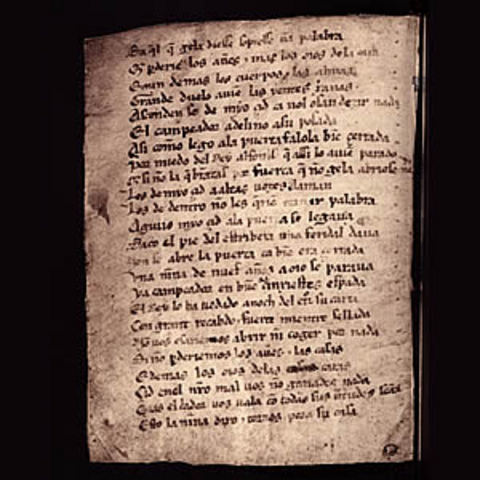 Da q̃l q̃ gela diesse sopiesse ũa palabra
Q̃ ꝑderie los aũes ⁊ mas los oios de la cara
E aun demas los cuerpos ⁊ las almas
Grande duelo auien las yentes xanas
Asconden se de myo çid ca nol osan dezir nada
El campeador adelino asu posada
Asi como lego ala puerta falola biẽ çerrada
Por miedo del Rey alfonsso q̃ assi lo auiẽ parado
Q̃ si nõ la q̃brantas por fuerça q̃ nõ gela abriese
Los de myo çid a altas uozes laman
Los de dentro nõ les q̃rien tornar palabra
Aguijo myo çid ala puerta se legaua
Saco el pie del estribera una feridal daua
Non se abre la puerta ca biẽ era çerrada
Vna niña de nuef años a oio se paraua
Ya campeador en buẽ ora çinxiestes espada
El Rey lo ha uedado anoch del etro su carta
Con grant recabdo ⁊ fuerte mientre sellada
Nõ uos osariemos abrir nĩ coger por nada
Si nõ ꝑderiemos los aũes ⁊ las casas
E demas los oios delas caras
Çid enel nr̃o mal uos nõ ganades nada
Mas el criador uos uala cõ todas sus ũtudes
Esto la niña dixo ⁊ tornos pora su casa